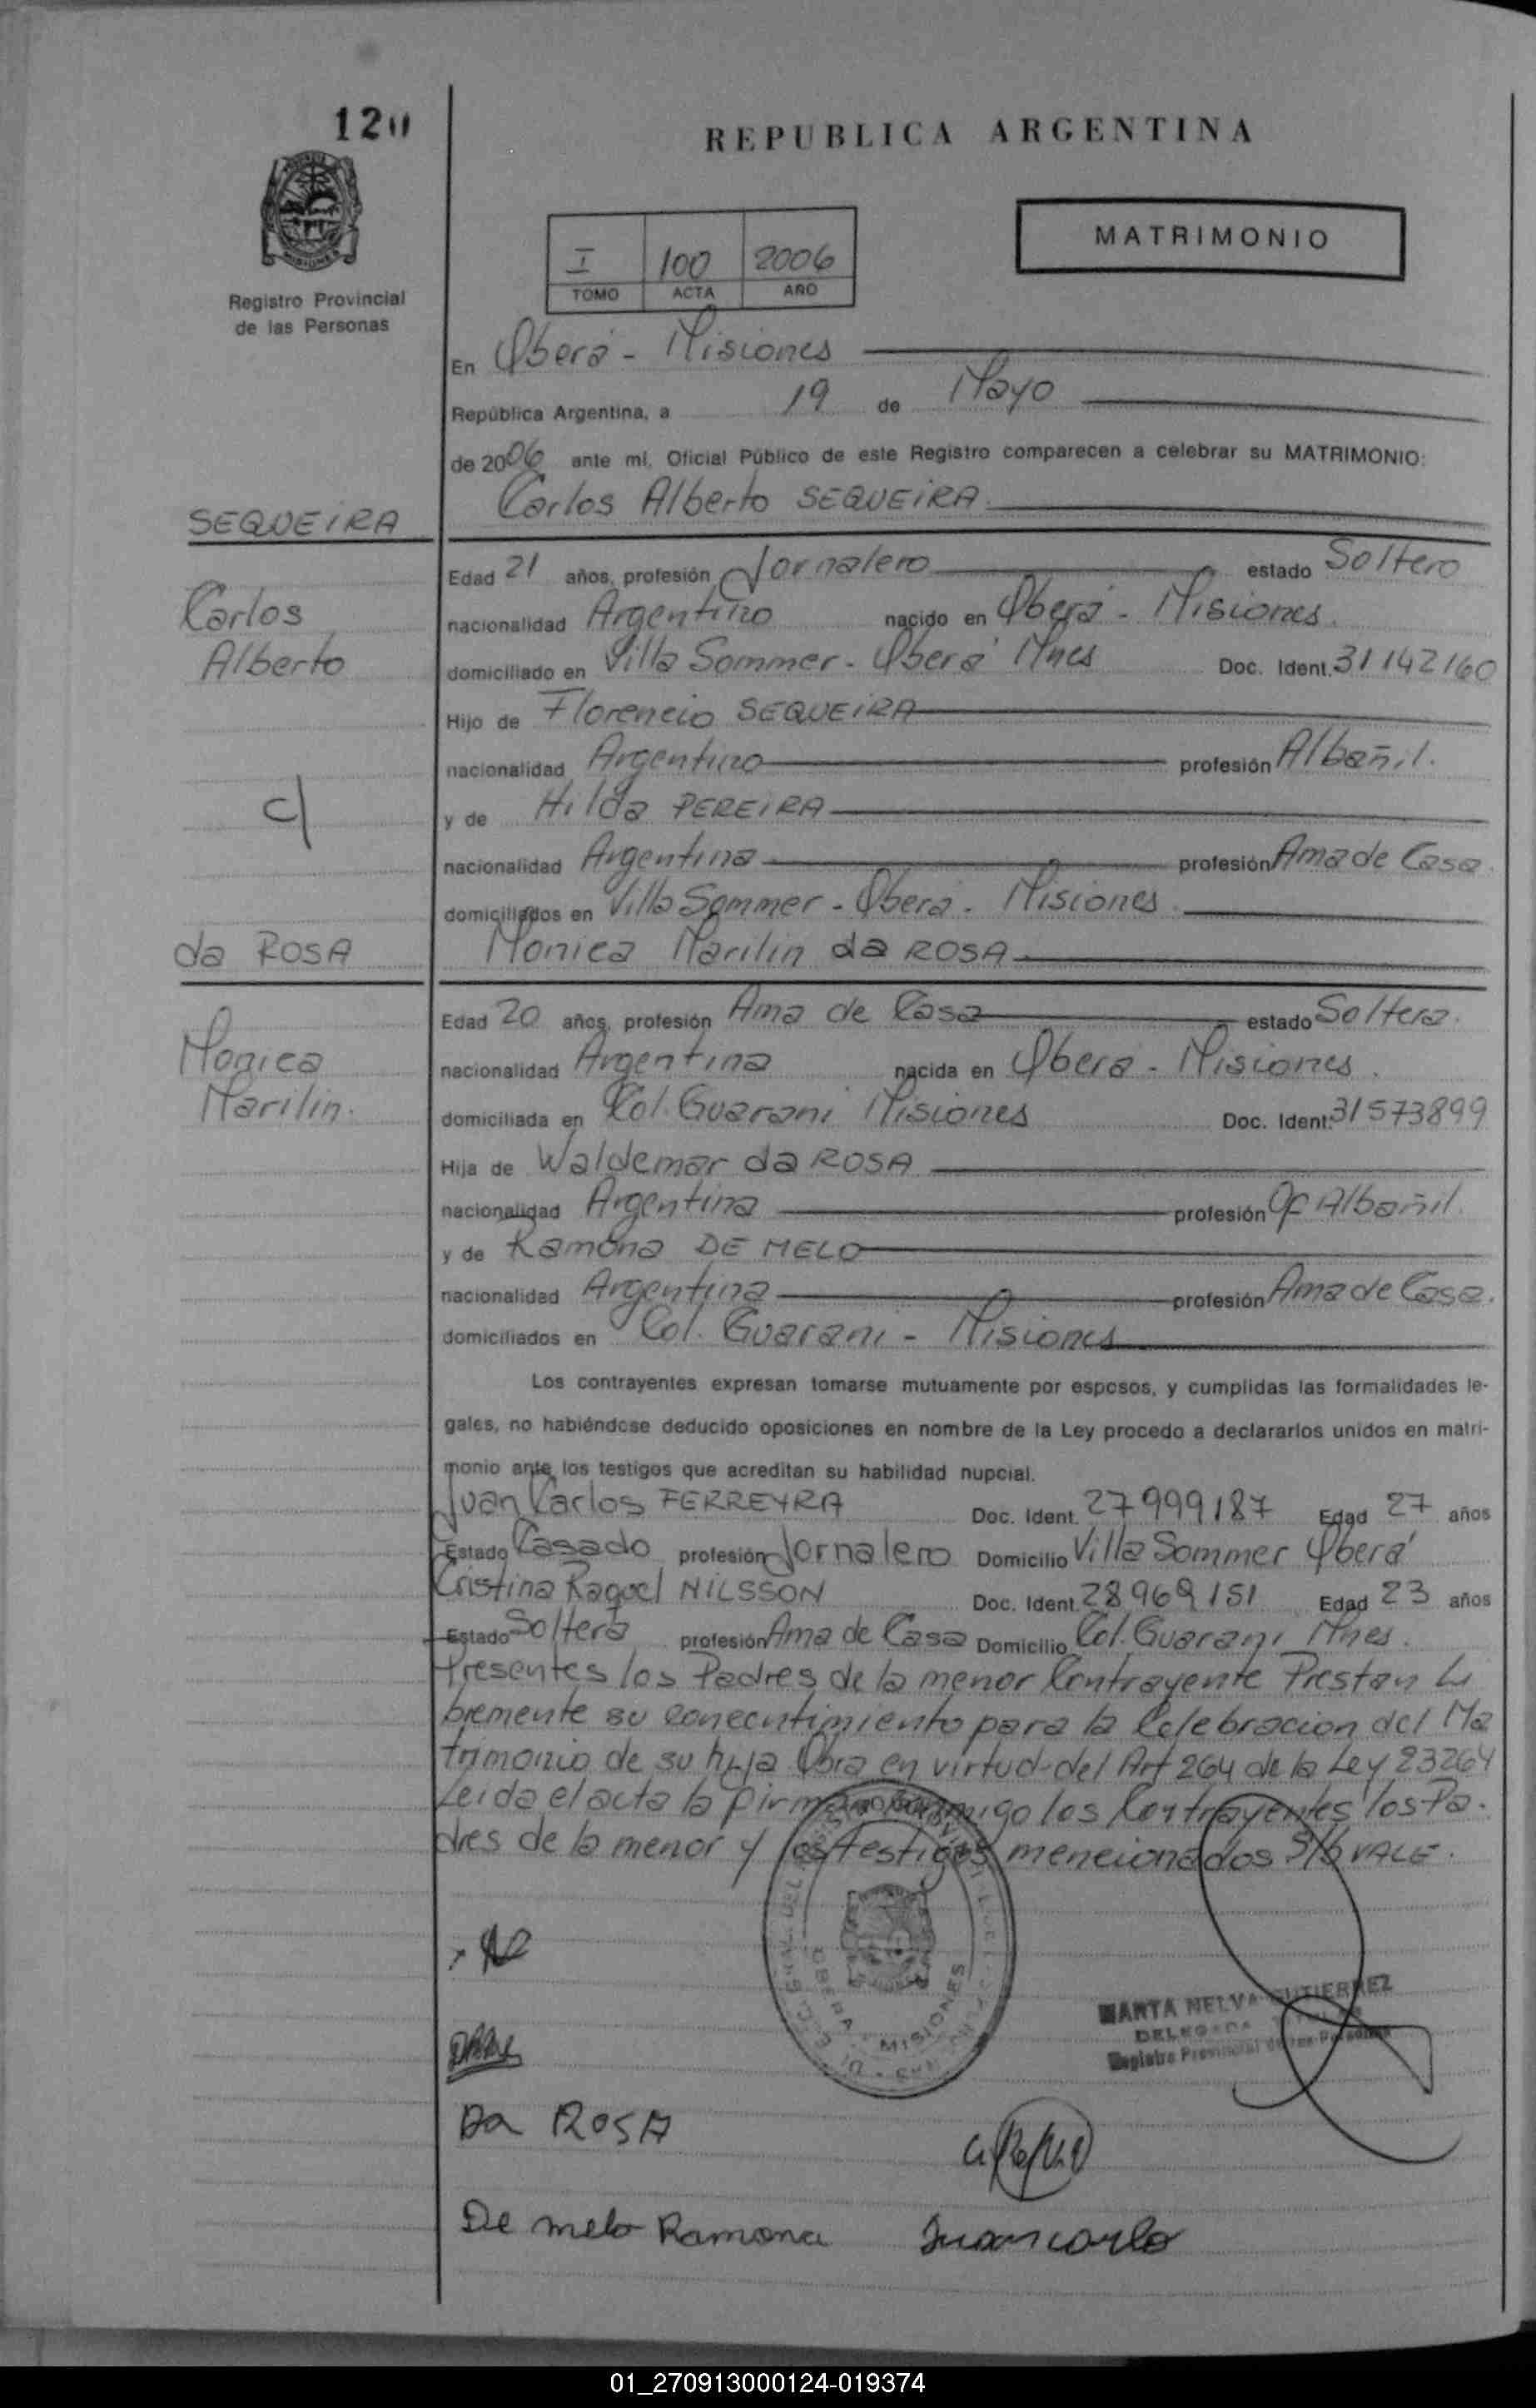 120
REPUBLICA ARGENTINA
MATRIMONIO
I 100 2006
TOMO ACTA AÑO
MISIONES
Registro Provincial
de las Personas
En Oberá - Misiones
República Argentina, a 19 de Mayo
de 2006 ante mí, Oficial Público de este Registro comparecen a celebrar su MATRIMONIO:
Carlos Alberto SEQUEIRA
SEQUEIRA
Edad 21 años, profesión Jornalero estado Soltero
Carlos
nacionalidad Argentino nacido en Oberá - Misiones.
Alberto
domiciliado en Villa Sommer - Oberá Mnes Doc. Ident. 31142160
Hijo de Florencio SEQUEIRA
nacionalidad Argentino profesión Albañil.
c/
y de Hilda PEREIRA
nacionalidad Argentina profesión Ama de Casa.
domiciliados en Villa Sommer - Oberá - Misiones.
da ROSA
Monica Marilin da ROSA
Edad 20 años, profesión Ama de Casa estado Soltera.
Monica
nacionalidad Argentina nacida en Oberá - Misiones.
Marilin.
domiciliada en Col. Guarani Misiones Doc. Ident. 31573899
Hija de Waldemar da ROSA
nacionalidad Argentina profesión Of Albañil.
y de Ramona DE MELO
nacionalidad Argentina profesión Ama de Casa.
domiciliados en Col. Guarani - Misiones
Los contrayentes expresan tomarse mutuamente por esposos, y cumplidas las formalidades le-
gales, no habiéndose deducido oposiciones en nombre de la Ley procedo a declararlos unidos en matri-
monio ante los testigos que acreditan su habilidad nupcial.
Juan Carlos FERREYRA Doc. Ident. 27999187 Edad 27 años
Estado Casado profesión Jornalero Domicilio Villa Sommer Oberá
Cristina Raquel NILSSON Doc. Ident. 28969151 Edad 23 años
Estado Soltera profesión Ama de Casa Domicilio Col. Guarani Mnes.
Presentes los Padres de la menor Contrayente Prestan Li
bremente su conecntimiento para la Celebracion del Ma
trimonio de su hija Obra en virtud del Art 264 de la Ley 23264
Leida el acta la firman conmigo los Contrayentes los Pa-
dres de la menor y los testigos mencionados S/b VALE.
OBERA MISIONES
MARTA NELVA GUTIERREZ
DELEGADA
Registro Provincial de las Personas
Da ROSA
De melo Ramona Juancarlo
01_270913000124-019374